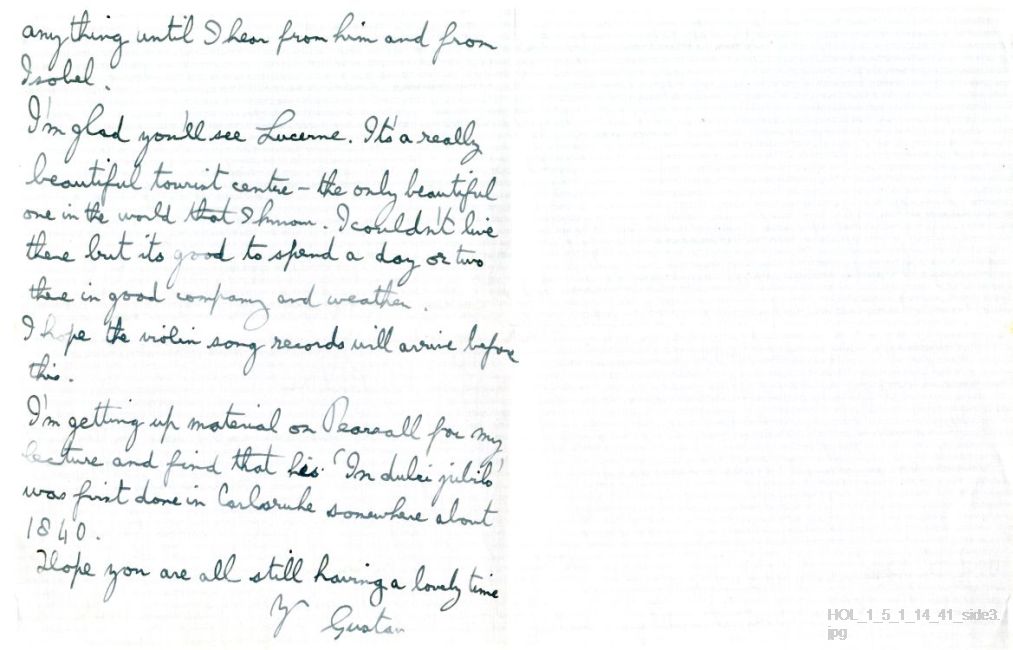 anything until I hear from him and from
Isobel.
I'm glad you'll see Lucerne. It's a really
beautiful tourist centre – the only beautiful
one in the world that I know. I couldn't live
there but its good to spend a day or two
there in good company and weather.
I hope the violin song records will arrive before
this.
I'm getting up material on Pearsall for my
lecture and find that his 'In dulci jubilo'
was first done in Carlsruhe somewhere about
1840.
Hope you are all still having a lovely time
Yr Gustav
HOL_1_5_1_14_41_side3.
jpg